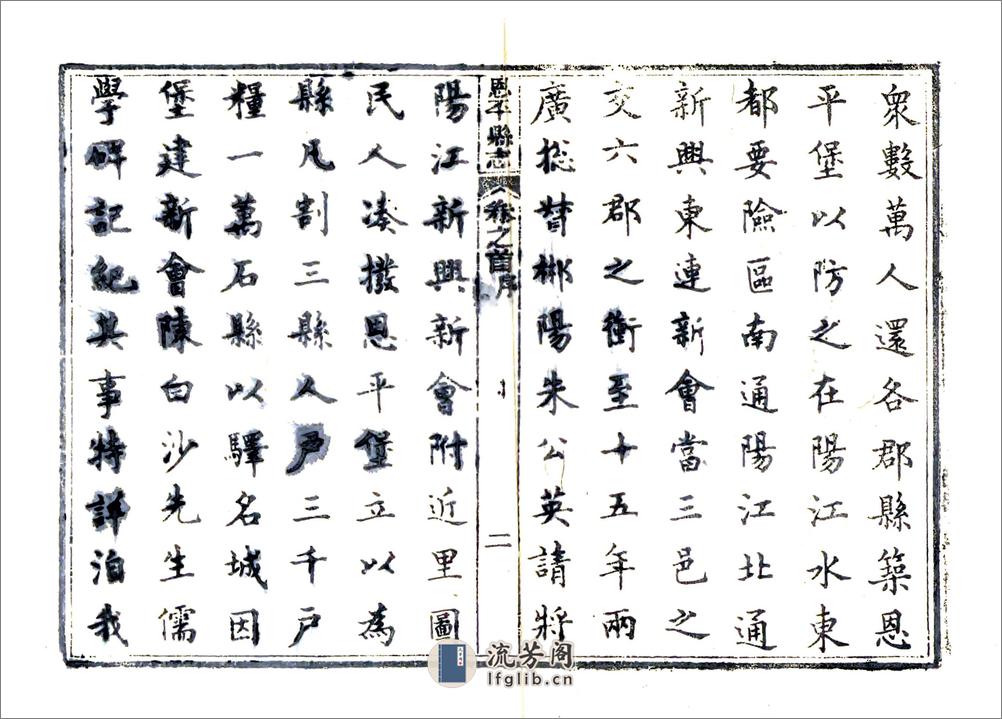 衆數萬人還各郡縣築恩
平堡以防之在陽江水東
都要險區南通陽江北通
新興東連新會當三邑之
交六郡之衝至十五年兩
廣捴督郴陽朱公英請將
恩平縣志
卷之首
序
二
陽江新興新會附近里圖
民人凑撥恩平堡立以為
縣凡割三縣人戶三千戶
糧一萬石縣以驛名城因
堡建新會陳白沙先生儒
學碑記紀其事特詳洎我
流芳阁
lfglib.cn